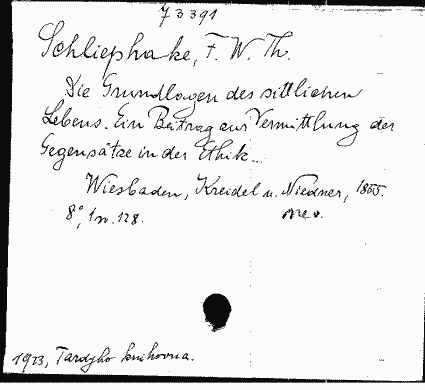 73391
Schliephake, F. W. Th.
Die Grundlagen des sittlichen
Lebens. Ein Beitrag zur Vermittlung der
Gegensätze in der Ethik...
Wiesbaden, Kreidel u. Niedner, 1855.
8°, 1 n. 128.
1923, Tardyho knihovna.